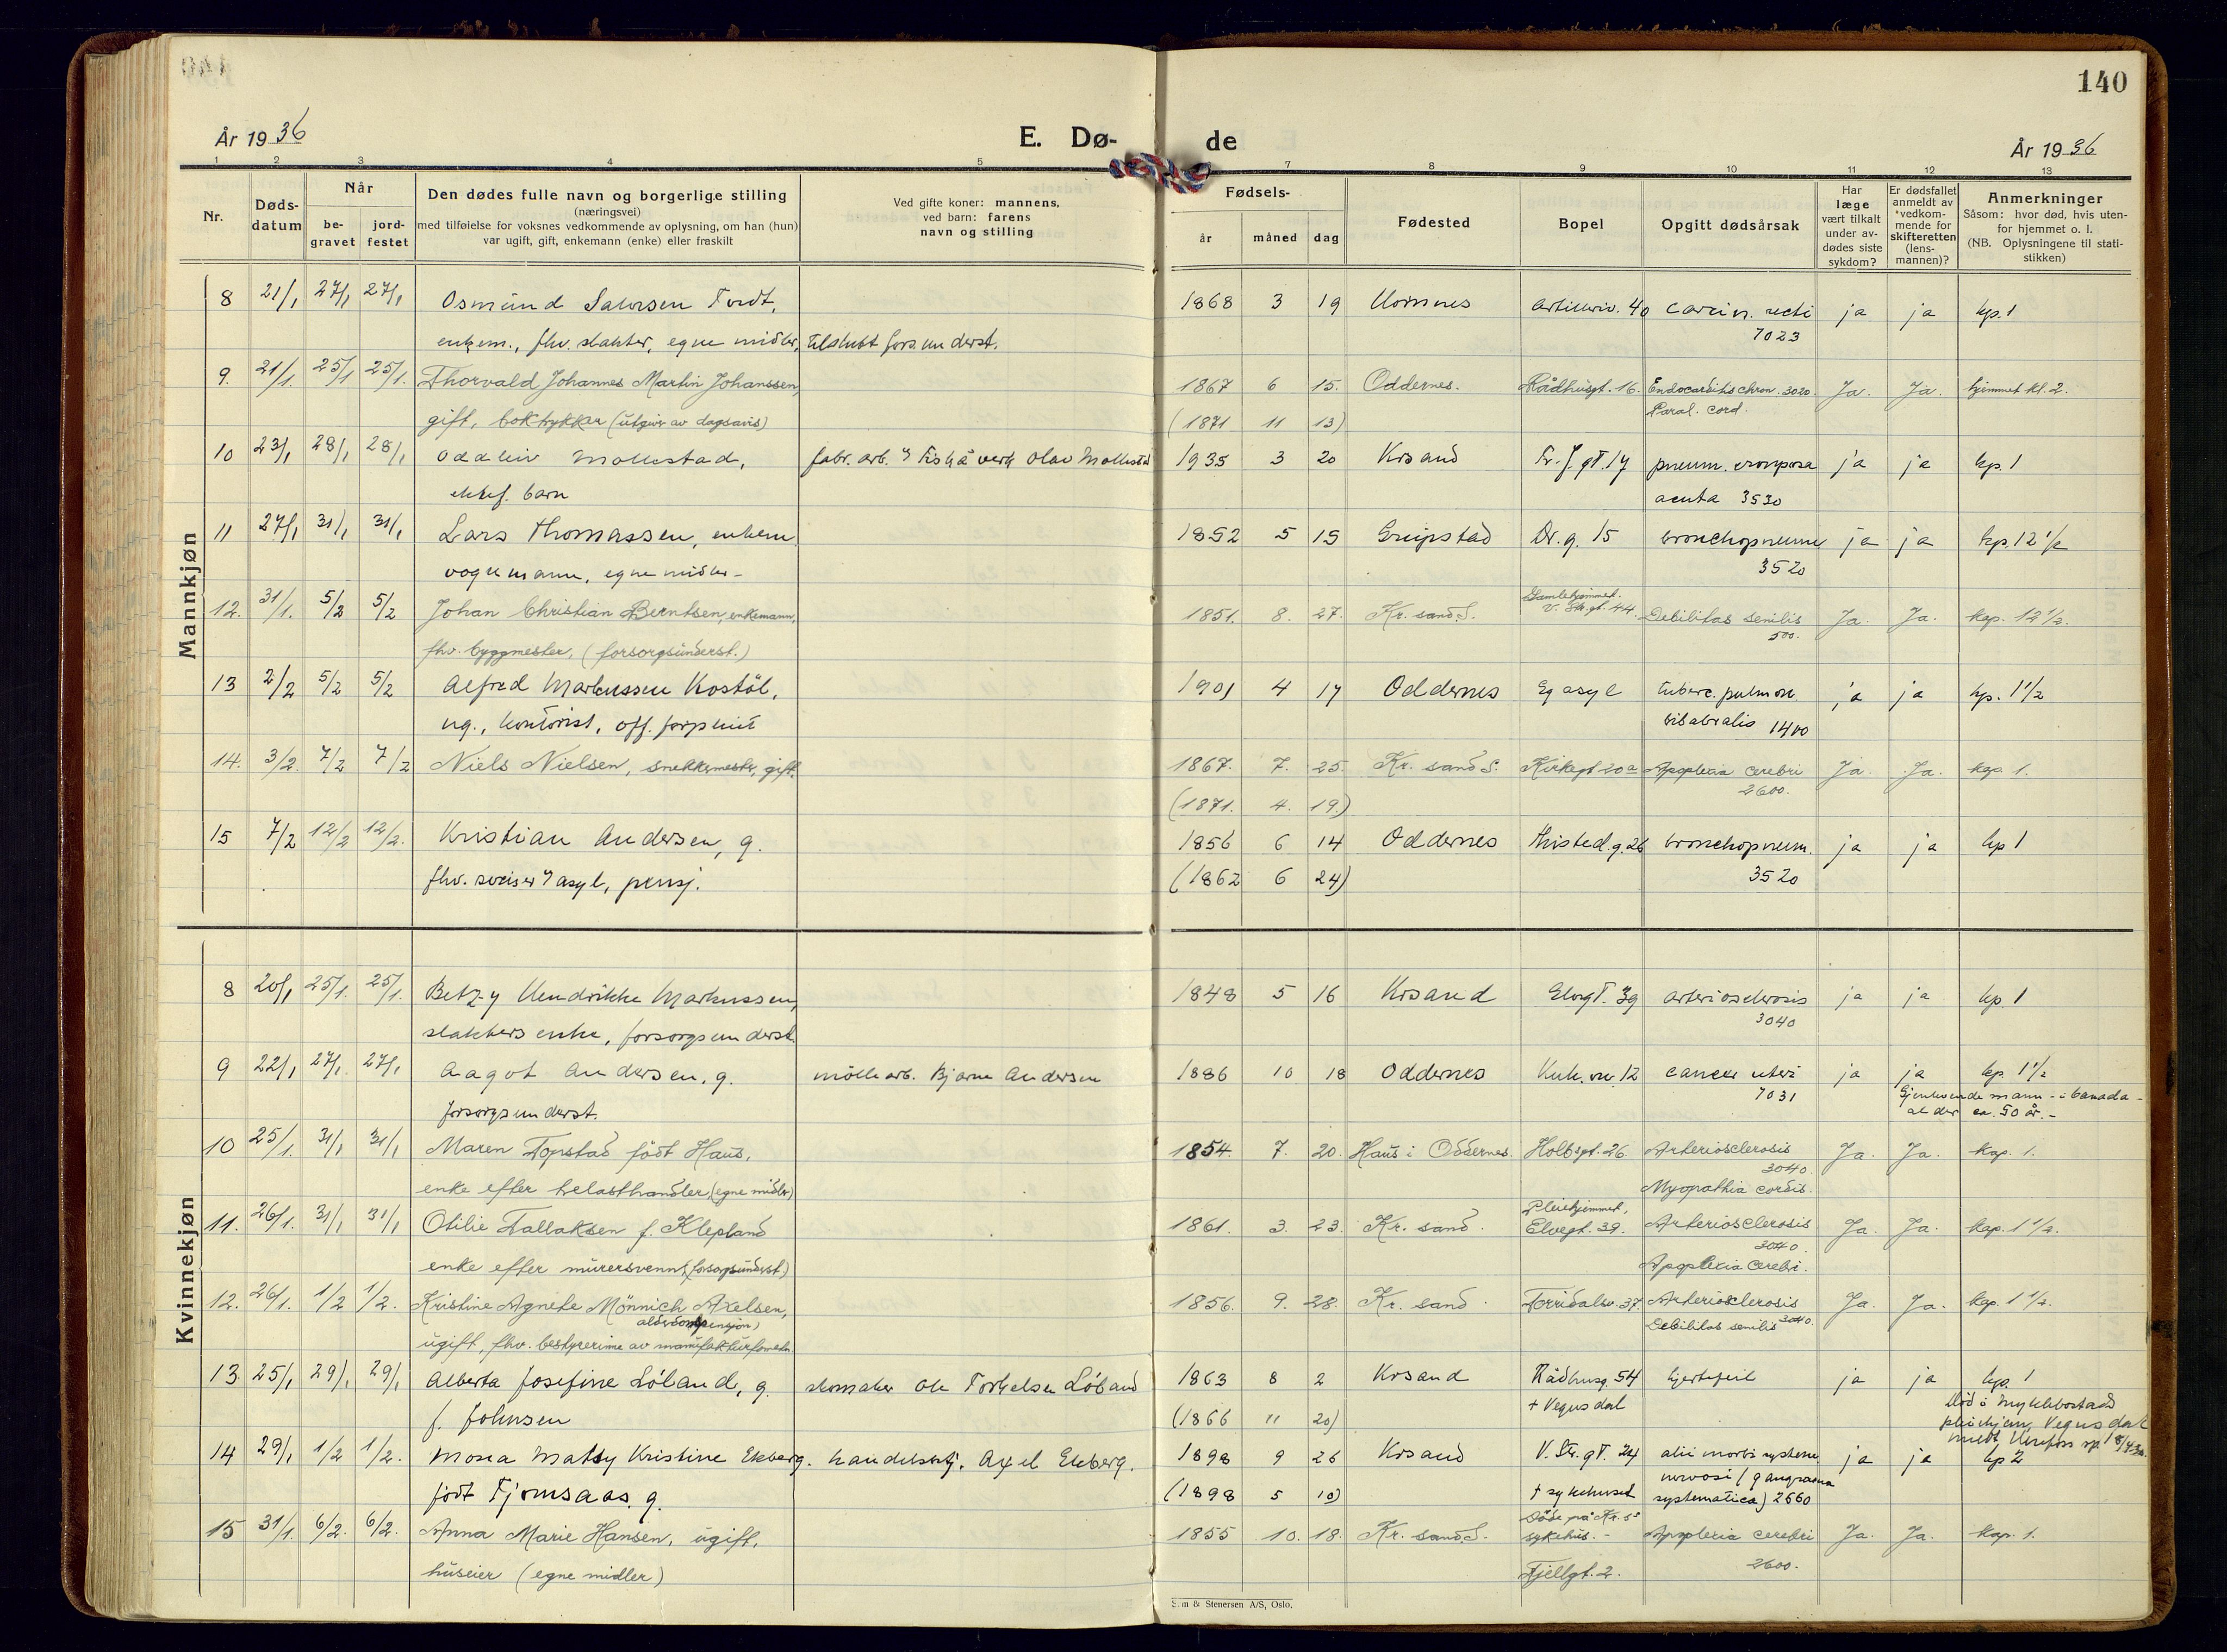 140
År 1936
E. Dø-
de
År 1936
1 2 3 4 5 7 8 9 10 11 12 13
Nr.
Døds-
datum
Når
be-
gravet
jord-
festet
Den dødes fulle navn og borgerlige stilling
(næringsvei)
med tilføielse for voksnes vedkommende av oplysning, om han (hun)
var ugift, gift, enkemann (enke) eller fraskilt
Ved gifte koner: mannens,
ved barn: farens
navn og stilling
Fødsels-
år måned dag
Fødested
Bopel
Opgitt dødsårsak
Har
læge
vært tilkalt
under av-
dødes siste
sykdom?
Er dødsfallet
anmeldt av
vedkom-
mende for
skifteretten
(lens-
mannen)?
Anmerkninger
Såsom: hvor død, hvis uten-
for hjemmet o. l.
(NB. Oplysningene til stati-
stikken)
Mannkjøn
8 21/1 27/1 27/1 Osmund Tordt, 1868 3 19 Hornnes Artilleriv. 40 carcin. recti ja ja kp. 1
enkem., fhv. slakter, egne midler, tilskutt fors.underst. 7023
9. 21/1. 25/1 25/1. Thorvald Johannes Martin Johanssen, 1867 6 15. Oddernes. Rådhusgt. 16. Endocarditis chron. 3020. Ja. Ja. hjemmet kl. 2.
gift, boktrykker (utgiver av dagsavis) (1871 11 13) Paral. cord.
10 23/1 28/1 28/1 Oddleiv Mollestad, fabr. arb. v/ Fiskå verk Olav Mollestad 1935 3 20 Krsand Fr. f. gt. 17 pneum. crouposa ja ja kp. 1
ektef. barn acuta 3530
11 27/1 31/1 31/1 Lars Thomassen, enkem. 1852 5 15 Greipstad Dr. g. 15 bronchopneum ja ja kp. 12 1/2
vognmann, egne midler - 3520
12. 31/1. 5/2 5/2 Johan Christian Berntsen, enkemann, 1851. 8. 27. Kr. sand S. Samlehjemmet. V. Str. gt. 44. Debilitas senilis Ja. Ja. kap. 12 1/2.
fhv. byggmester, (forsorgsunderst.) 500.
13 2/2 5/2 5/2 Alfred Markussen Kostøl, 1901 4 17 Oddernes Eg asyl tuberc. pulmon. ja ja kp. 1 1/2
ug., kontorist, off. forpleiet bilateralis 1400
14. 3/2. 7/2 7/2 Niels Nielsen, snekkermester, gift. 1867. 7. 25. Kr. sand S. Kirkegt 20a Apoplexia cerebri Ja. Ja. kap. 1.
(1871. 4. 19.) 2600.
15 7/2 12/2 12/2. Kristian Andersen, g. 1856 6 14 Oddernes Thisted. g. 26 bronchopneum. ja ja kp 1
fhv. reiser v/ asyl, pensj. (1862 6 24) 3520
Kvinnekjøn
8 20/1 25/1. 25/1. Betzy Hendrikke Markussen, 1848 5 16 Krsand Elvegt. 39 arteriosclerosis ja ja kp. 1
slakters enke, forsorgsunderst. 3040
9 22/1 27/1. 27/1 Aagot Andersen, g. møllearb. Bjarne Andersen 1886 10 18 Oddernes Kuh. vn. 12 cancer uteri ja ja kp. 1 1/2
forsorgsunderst. 7031 Gjenlevende mann - i Canada -
alder ca. 50 år. -
10 25/1. 31/1 31/1 Maren Topstad født Haus, 1854. 7. 20. Haus i Oddernes. Holbgt. 26 Arteriosclerosis Ja. Ja. kap. 1.
enke efter trelasthandler, (egne midler) 3040. Myopathia cordis.
11. 26/1. 31/1 31/1 Otilie Tallaksen f. Klepland 1861. 3. 23. Kr. sand. Pleiehjemmet, Elvegt. 39. Arteriosclerosis Ja. Ja. kap. 1 1/2.
enke efter murersvenn, (forsorgsunderst) 3040. Apoplexia cerebri.
12. 26/1. 1/2 1/2. Kristine Agnete Mönnich Axelsen, 1856. 9. 28. Kr. sand. Torridalsv. 37. Arteriosclerosis Ja. Ja. kap. 1 1/2.
alderdomspensjon) Debilitas senilis 3040.
ugift, fhv. bestyrerinne av manufakturforretn.
13. 25/1 29/1 29/1 Alberta Josefine Løland, g. skomaker Ole Torkelsen Løland 1863 8 2 Krsand Rådhusg. 54 hjertefeil ja ja kp. 1
f. Johnsen (1866 11 20) + Vegusdal Død i Myklebostad
pleiehjem, Vegusdal
14 29/1 1/2 1/2. Mona Matty Kristine Ekberg. handelsrep. Axel Ekberg. 1898 9 26 Krsand V. Str. gt. 24 alii morbi systemæ ja ja kp 2
født Fjomsaas. g. (1898 5 10) + sykehuset nervosi (gangraena
systematica) 2660
15 31/1. 6/2. 6/2. Anna Marie Hansen, ugift, 1855 10. 18. Kr. sand S. Døde på Kr. s. sykehus. - Apoplexia cerebri Ja. Ja. kap. 1.
huseier (egne midler) Fjellgt. 2. 2600.
& Stenersen A/S, Oslo.